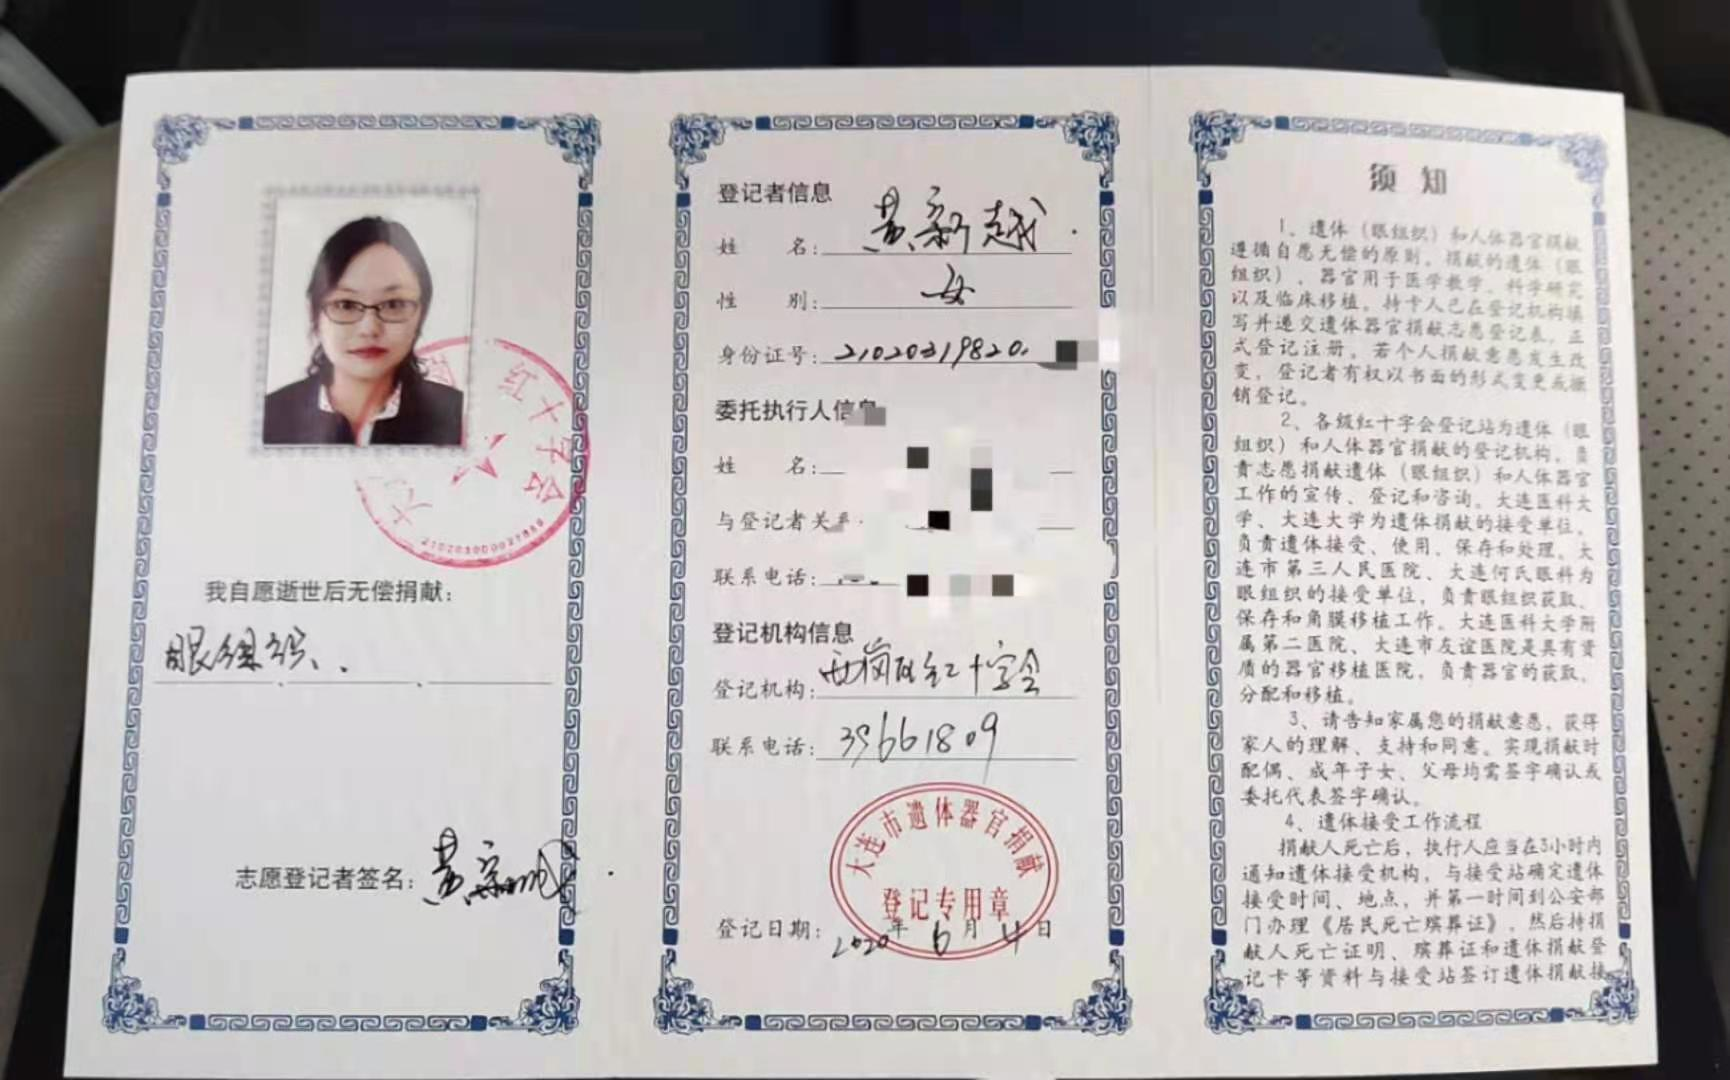 大连
十字会
2102030002788
我自愿逝世后无偿捐献：
眼组织、
志愿登记者签名：黄新越
登记者信息
姓 名：黄新越
性 别：女
身份证号：2102031982
委托执行人信息
姓 名：
与登记者关系
联系电话：
登记机构信息
登记机构：西岗区红十字会
联系电话：39661809
大连市遗体器官捐献
登记专用章
登记日期：2020年6月4日
须 知
1、遗体（眼组织）和人体器官捐献
遵循自愿无偿的原则，捐献的遗体（眼
组织）、器官用于医学教学、科学研究
以及临床移植。持卡人已在登记机构填
写并递交遗体器官捐献志愿登记表，正
式登记注册，若个人捐献意愿发生改
变，登记者有权以书面的形式变更或撤
销登记。
2、各级红十字会登记站为遗体（眼
组织）和人体器官捐献的登记机构，负
责志愿捐献遗体（眼组织）和人体器官
工作的宣传、登记和咨询。大连医科大
学、大连大学为遗体捐献的接受单位，
负责遗体接受、使用、保存和处理。大
连市第三人民医院、大连何氏眼科为
眼组织的接受单位，负责眼组织获取、
保存和角膜移植工作。大连医科大学附
属第二医院、大连市友谊医院是具有资
质的器官移植医院，负责器官的获取、
分配和移植。
3、请告知家属您的捐献意愿，获得
家人的理解、支持和同意。实现捐献时
配偶、成年子女、父母均需签字确认或
委托代表签字确认。
4、遗体接受工作流程
捐献人死亡后，执行人应当在3小时内
通知遗体接受机构，与接受站确定遗体
接受时间、地点，并第一时间到公安部
门办理《居民死亡殡葬证》，然后持捐
献人死亡证明、殡葬证和遗体捐献登
记卡等资料与接受站签订遗体捐献接